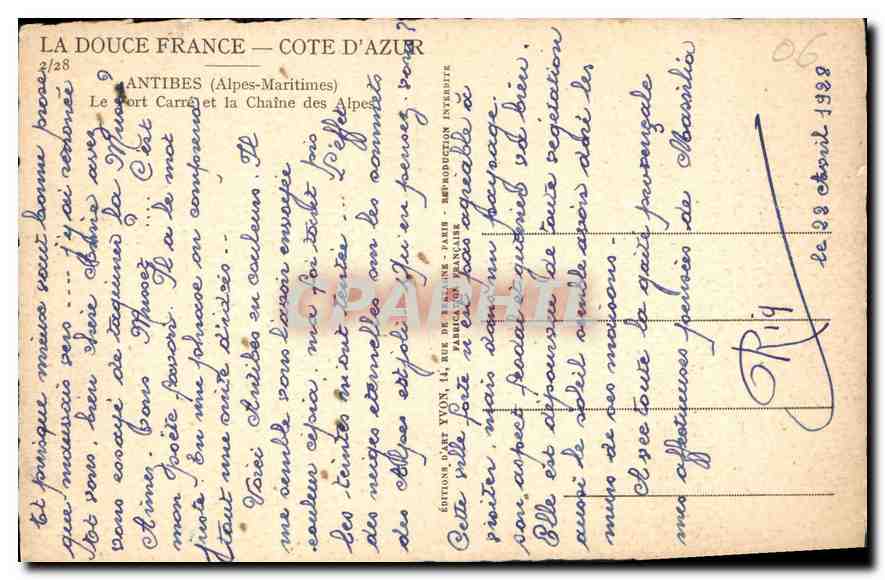 LA DOUCE FRANCE — COTE D'AZUR
2/28
ANTIBES (Alpes-Maritimes)
Le Fort Carré et la Chaîne des Alpes
Et puisque mieux vaut bonne prose
que mauvais vers .... j'y ai renoncé
Et vous, bien chère Aimée avez
vous essayé de taquiner la Muse?
Aimez-vous Musset .... C'est
mon poète favori. Il a le mot
juste. En une phrase on comprend
tout une suite d'idées..
Voici Antibes en couleurs. Il
me semble vous l'avoir envoyée
couleur cépia, ma foi tant pis
les teintes m'ont tentée... L'effet
des neiges éternelles sur les sommets
des Alpes est joli. Qu'en pensez-vous?
Cette ville forte n'est pas agréable à
visiter, mais dans un paysage
son aspect va bien.
Elle est dépourvue de toute végétation
aussi le soleil semble avoir doré les
murs de ses maisons.
Avec toute la gaîté provençale
mes affectueuses pensées de Massilia
Rig
le 22 Avril 1928
06
ÉDITIONS D'ART YVON, 14, RUE DE BRETAGNE - PARIS - REPRODUCTION INTERDITE
FABRICATION FRANÇAISE
CPARHIL